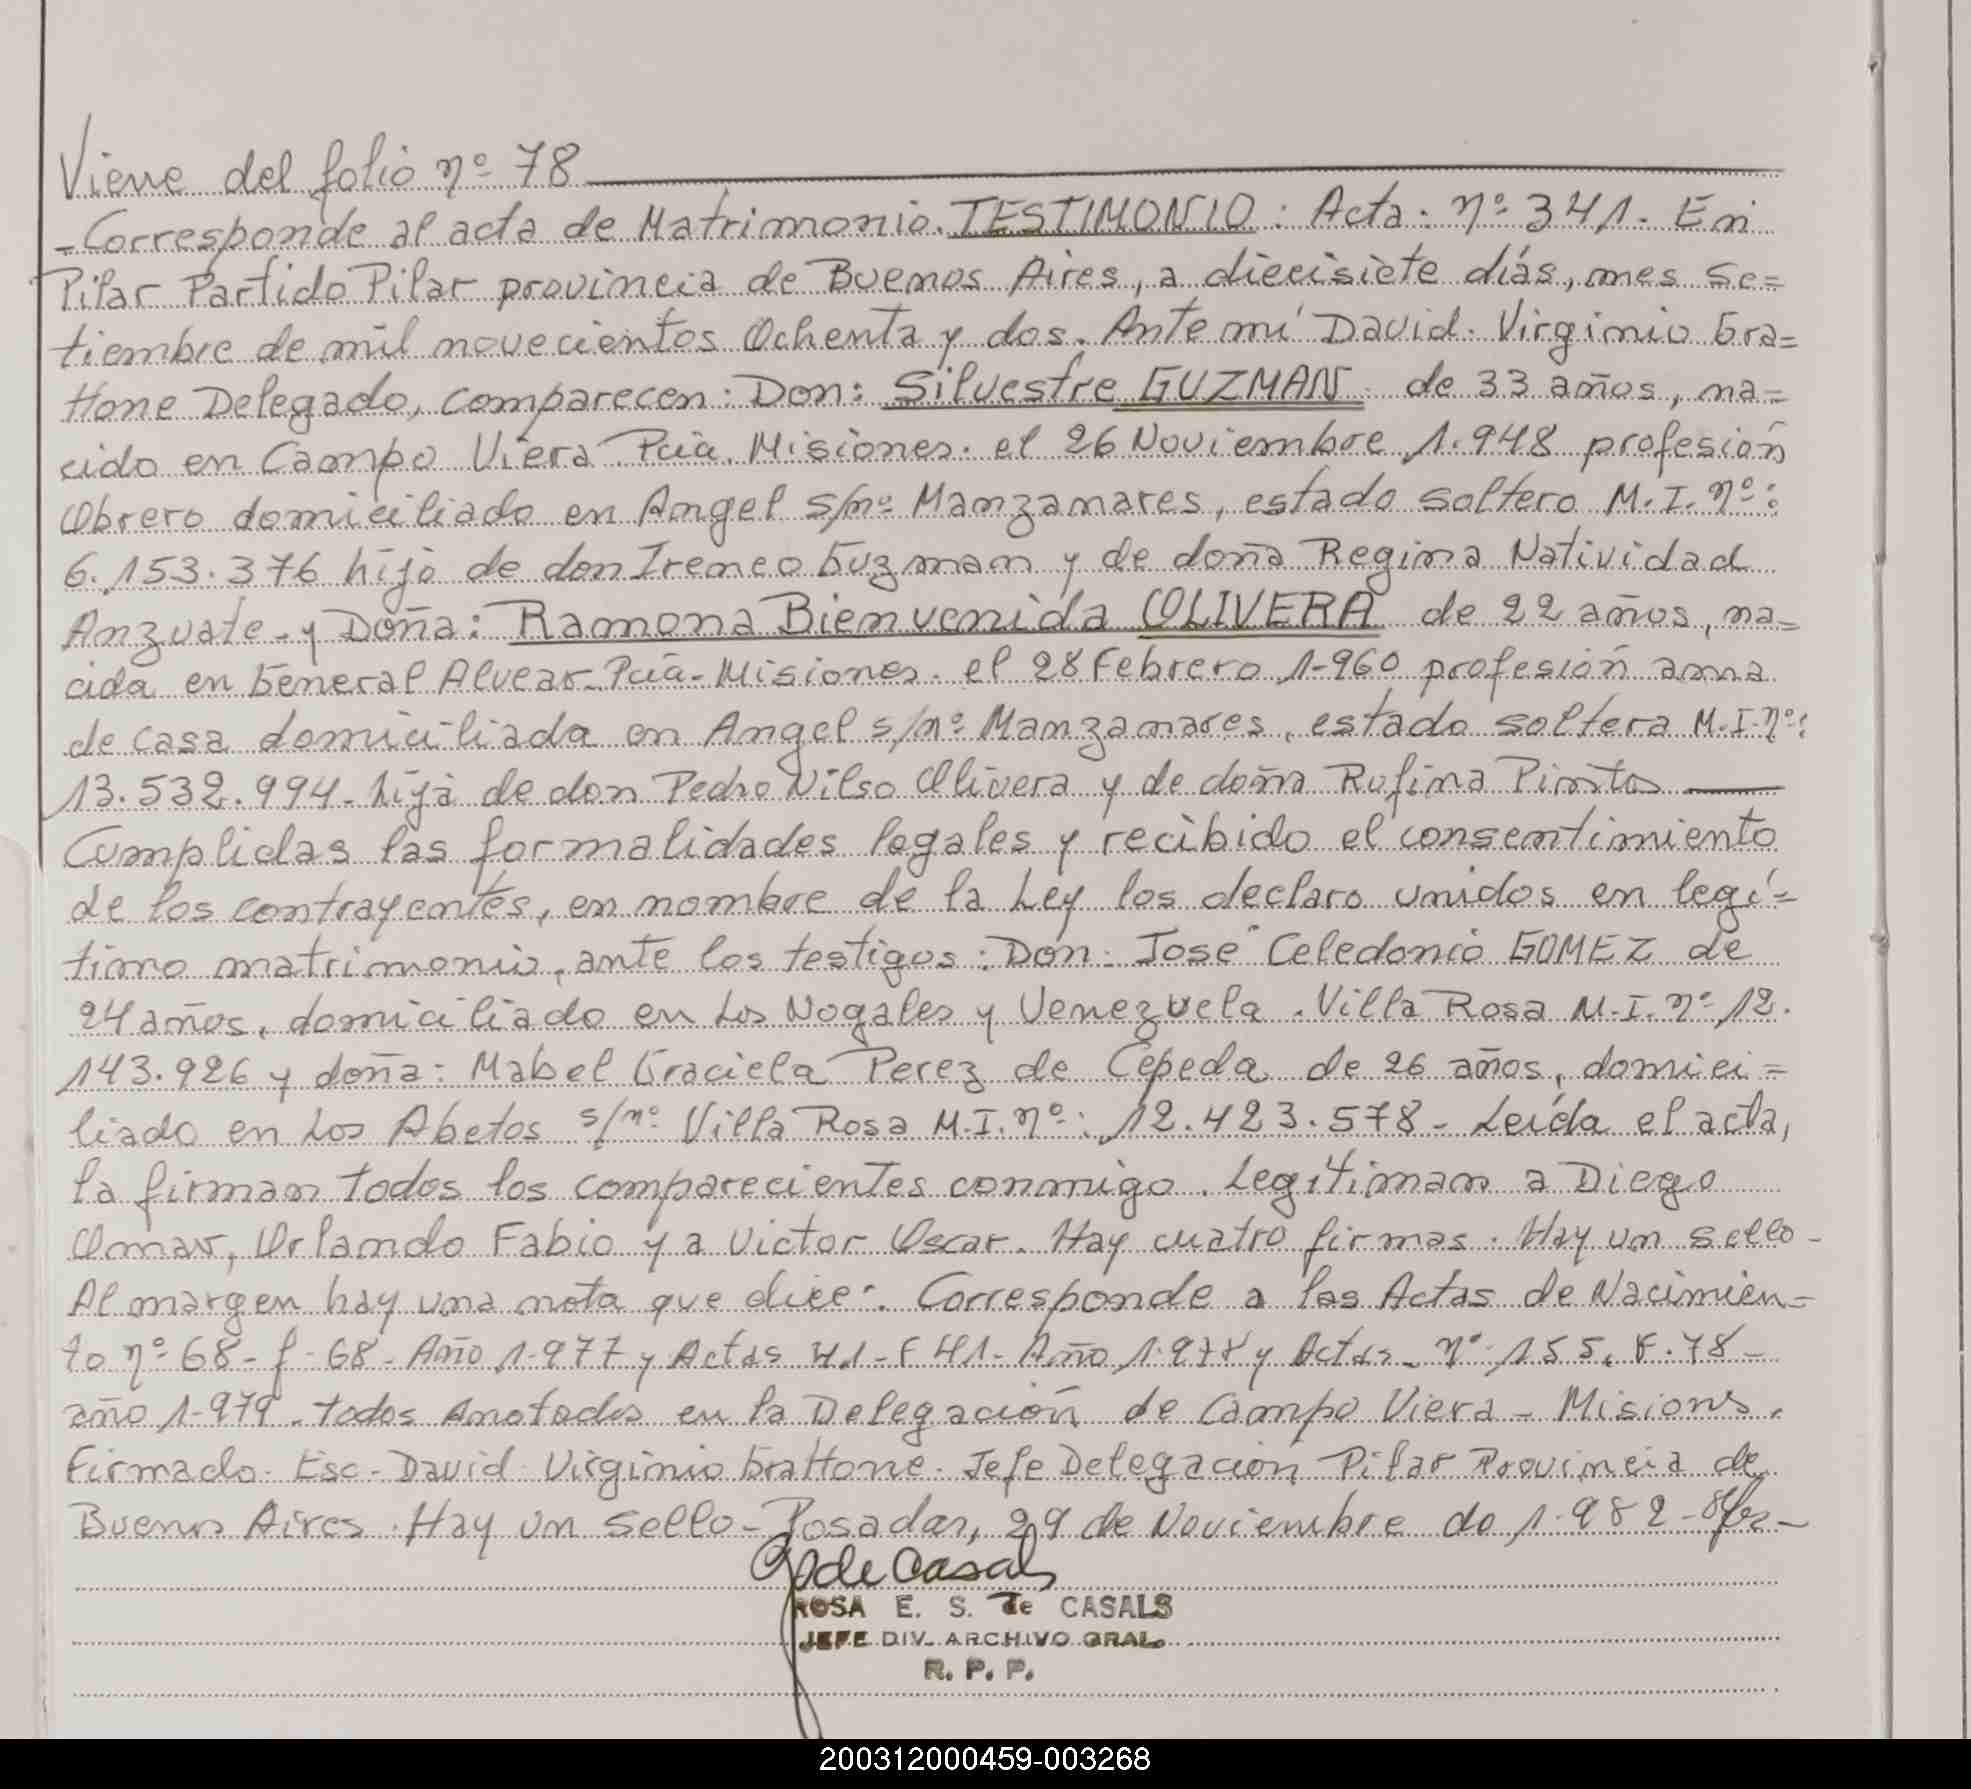 Viene del folio nº 78
- Corresponde al acta de Matrimonio. TESTIMONIO: Acta: nº 341. En
Pilar Partido Pilar provincia de Buenos Aires, a diecisiete días, mes Se=
tiembre de mil novecientos Ochenta y dos. Ante mí David. Virginio Gra=
ttone Delegado, comparecen: Don: Silvestre GUZMAN de 33 años, na=
cido en Campo Viera Pcia. Misiones. el 26 Noviembre 1.948 profesión
Obrero domiciliado en Angel s/nº Manzanares, estado soltero M.I. nº:
6.153.376 hijo de don Ireneo Guzman y de doña Regina Natividad
Anzuate - y Doña: Ramona Bienvenida OLIVERA de 22 años, na=
cida en General Alvear - Pcia - Misiones. el 28 Febrero 1-960 profesión ama
de casa domiciliada en Angel s/nº Manzanares, estado soltera M.I. nº:
13.532.994. hija de don Pedro Nilso Olivera y de doña Rufina Pintos
Cumplidas las formalidades legales y recibido el consentimiento
de los contrayentes, en nombre de la Ley los declaro unidos en legí=
timo matrimonio, ante los testigos: Don: José Celedonio GOMEZ de
24 años, domiciliado en Los Nogales y Venezuela. Villa Rosa M.I. nº 12.
143.926 y doña: Mabel Graciela Perez de Cepeda de 26 años, domici=
liado en Los Abetos s/nº Villa Rosa M.I. nº: 12.423.578 - Leída el acta,
la firman todos los comparecientes conmigo. Legitiman a Diego
Omar, Orlando Fabio y a Victor Oscar. Hay cuatro firmas. Hay un sello -
Al margen hay una nota que dice: Corresponde a las Actas de Nacimien-
to nº 68 - f - 68 - Año 1-977 y Actas 41 - F 41 - Año 1.978 y Actas - nº 155. F. 78 -
año 1-979. todos Anotados en la Delegación de Campo Viera - Misiones.
Firmado. Esc - David Virginio Grattone. Jefe Delegación Pilar Provincia de
Buenos Aires. Hay un sello - Posadas, 29 de Noviembre de 1.982 -
de Casals
ROSA E. S. de CASALS
JEFE DIV. ARCHIVO GRAL.
R. P. P.
200312000459-003268